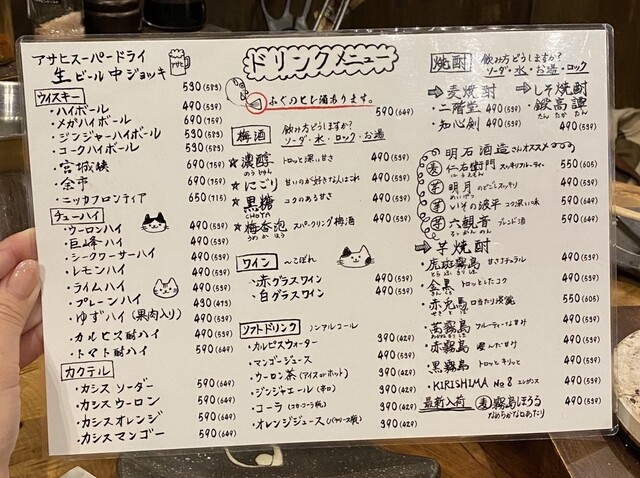 アサヒスーパードライ
生ビール中ジョッキ
530(583)
ウイスキー
・ハイボール 490(539)
・メガハイボール 690(759)
・ジンジャーハイボール 530(583)
・コークハイボール 530(583)
・宮城峡 690(759)
・余市 690(759)
・ニッカフロンティア 650(715)
チューハイ
・ウーロンハイ 490(539)
・巨峰ハイ 490(539)
・シークワーサーハイ 490(539)
・レモンハイ 490(539)
・ライムハイ 490(539)
・プレーンハイ 430(473)
・ゆずハイ(果肉入り) 490(539)
・カルピス酎ハイ 490(539)
・トマト酎ハイ 490(539)
カクテル
・カシスソーダー 590(649)
・カシスウーロン 590(649)
・カシスオレンジ 590(649)
・カシスマンゴー 590(649)
ドリンクメニュー
ふぐのヒレ酒あります。
590(649)
梅酒
飲み方どうしますか?
ソーダ・水・ロック・お湯
★濃醇 トロッと深い甘さ 490(539)
のうじゅん
★にごり 甘いのが好きな人はこれ 490(539)
★黒糖 コクのある甘さ 490(539)
CHOYA
★梅香泡 スパークリング梅酒 490(539)
うめかほう
ワイン 〜こぼれ
・赤グラスワイン 490(539)
・白グラスワイン 490(539)
ソフトドリンク ノンアルコール
・カルピスウォーター 390(429)
・マンゴージュース 390(429)
・ウーロン茶(アイスorホット) 390(429)
・ジンジャエール(辛口) 390(429)
・コーラ(コカ・コーラ瓶) 390(429)
・オレンジジュース(バヤリース瓶) 390(429)
焼酎
飲み方どうしますか?
ソーダ・水・お湯・ロック
⇒麦焼酎
・二階堂 490(539)
・知心剣 490(539)
⇒しそ焼酎
・鍛高譚
たんたかたん
490(539)
明石酒造さんオススメ
麦 仁右衛門 スッキリフルーティー 550(605)
芋 明月 のどごしスッキリ 490(539)
めいげつ
芋 いその波平 コク深い味 590(649)
芋 六観音 ブレンド酒 590(649)
ろっかんのん
⇒芋焼酎
・虎斑霧島 甘さナチュラル 490(539)
とらふきりしま
・金黒 トロッとしたコク 490(539)
・赤兎馬 口当たり淡麗 550(605)
せきとば
・茜霧島 フルーティーな甘み 490(539)
・赤霧島 490(539)
・黒霧島 トロッとキリッと 490(539)
・KIRISHIMA No8 エレガンス 490(539)
最新入荷 麦 霧島ほうる 490(539)
なめらかな口あたり